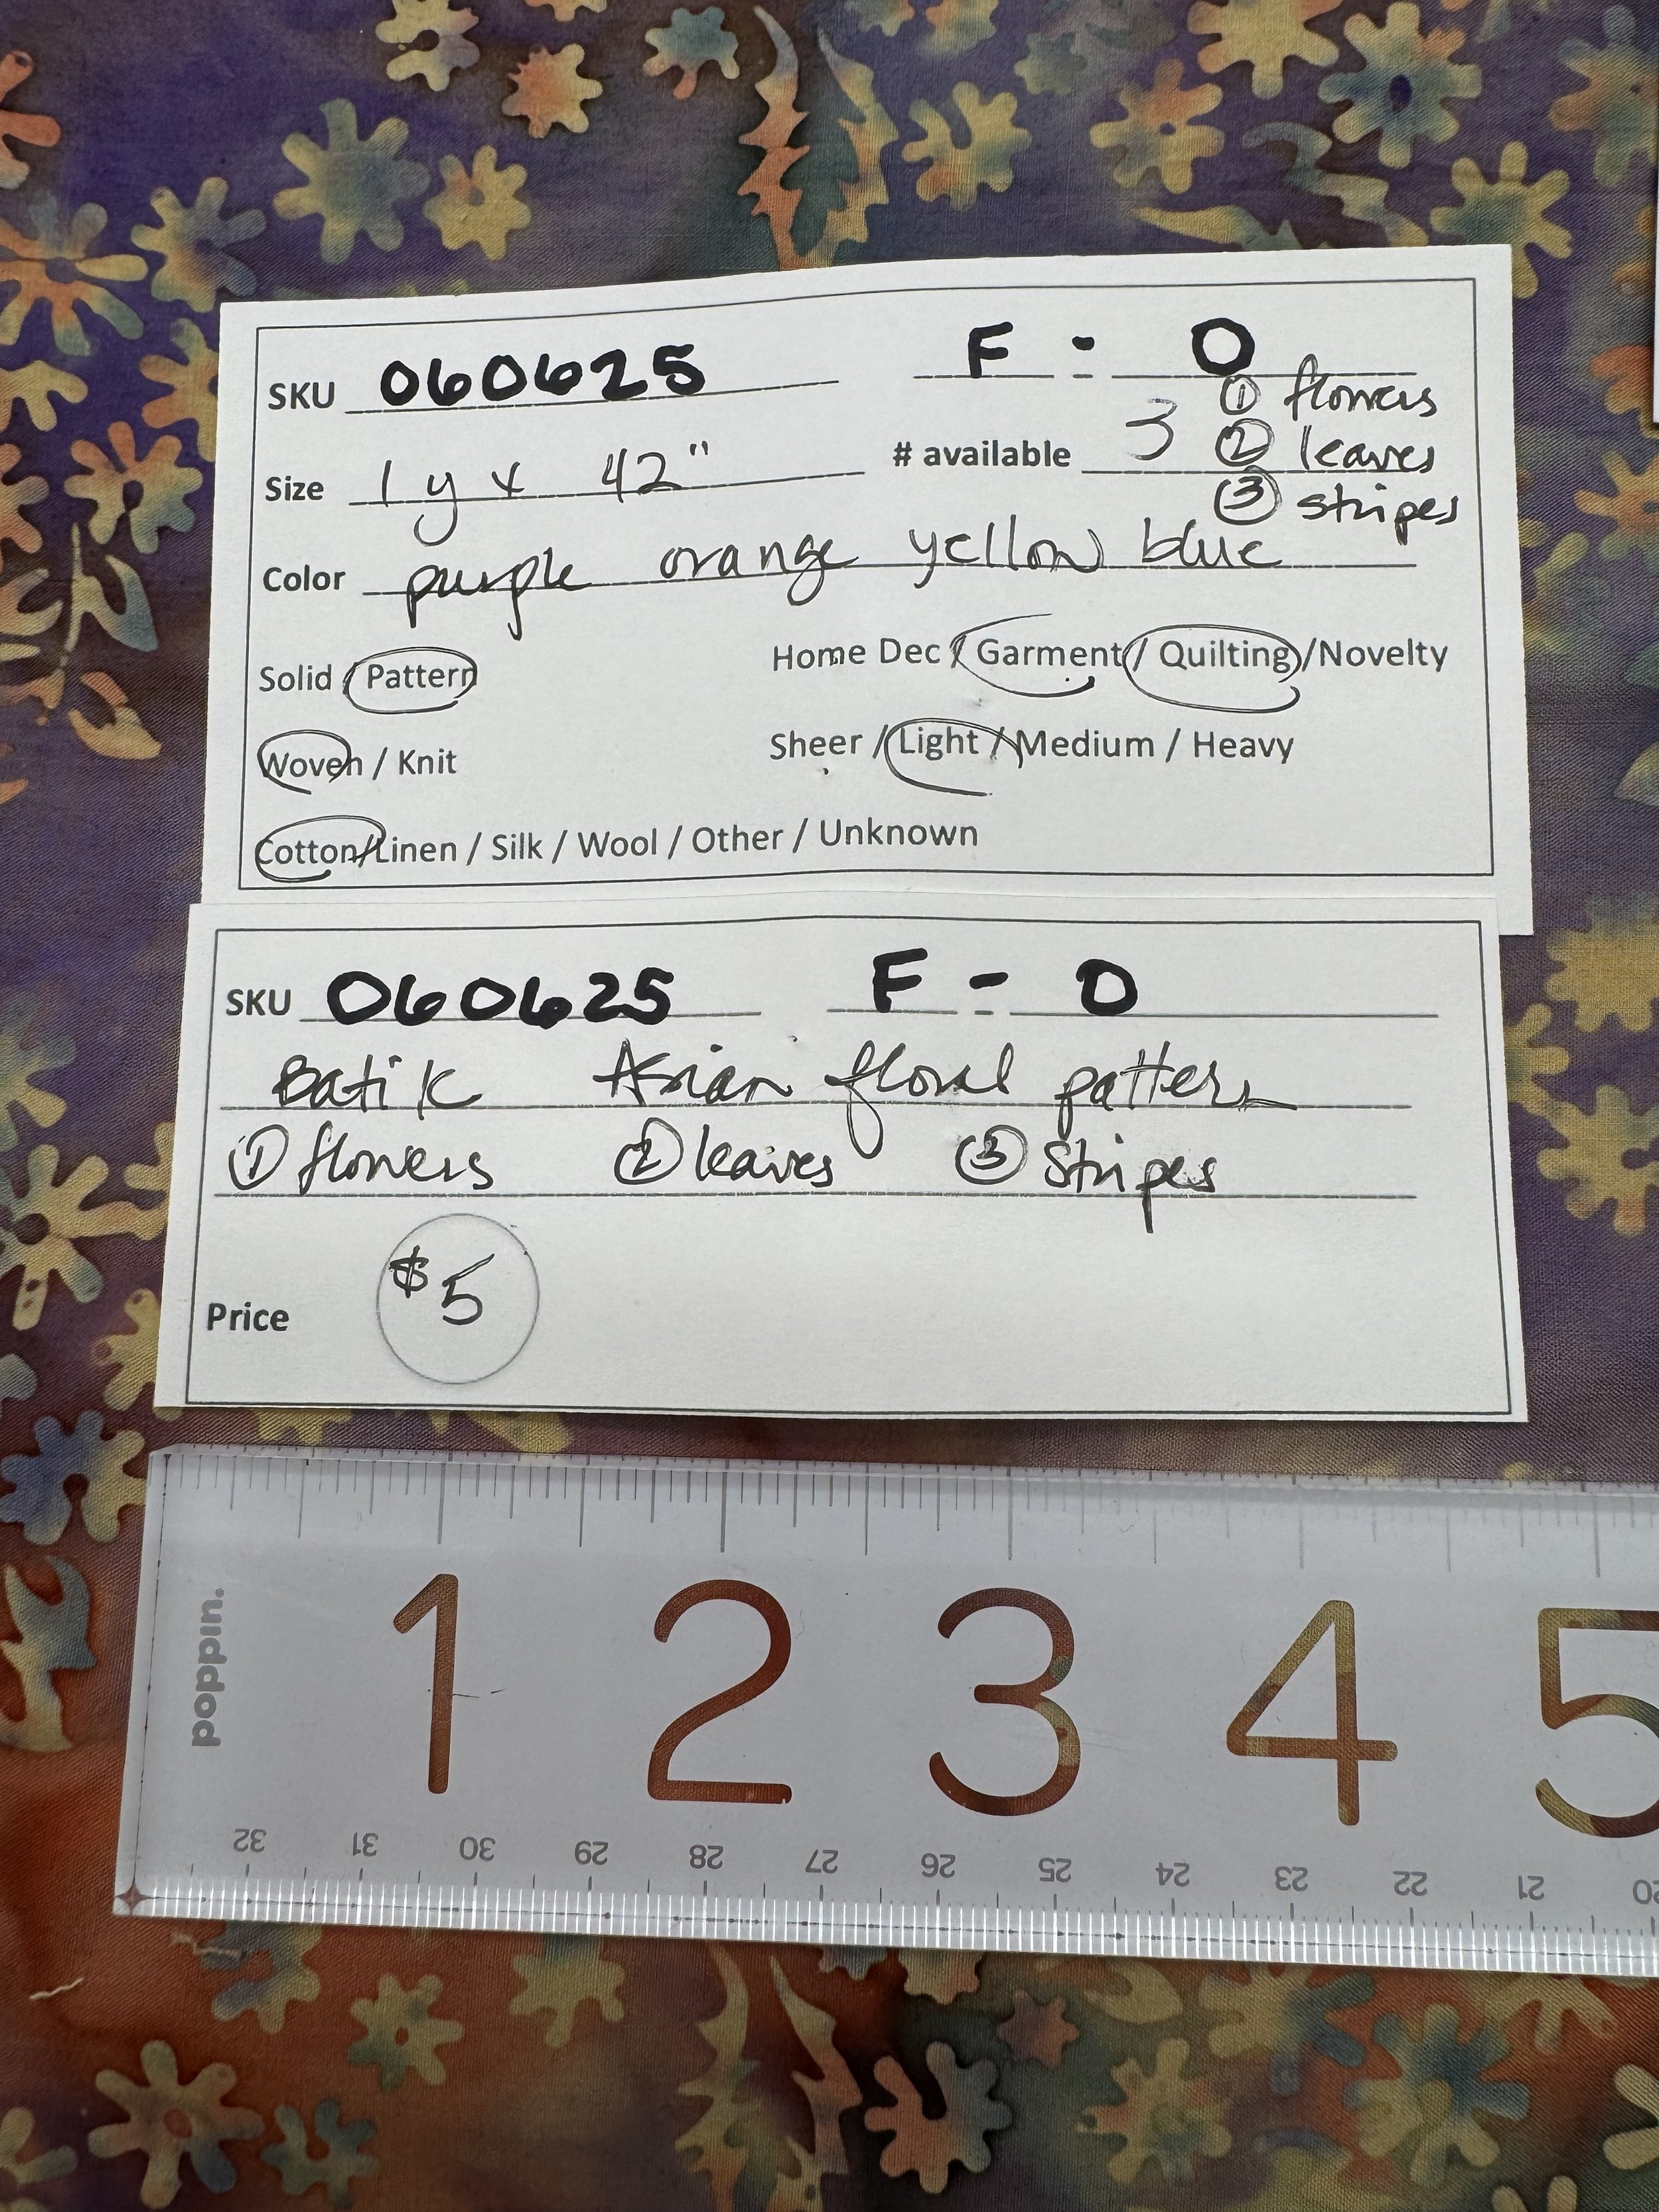 SKU 060625 F - O
① flowers
Size 1 y x 42" # available 3 ② leaves
③ stripes
Color purple orange yellow blue
Solid / Pattern Home Dec / Garment / Quilting /Novelty
Woven / Knit Sheer / Light / Medium / Heavy
Cotton/Linen / Silk / Wool / Other / Unknown
SKU 060625 F - O
Batik Asian floral pattern
① flowers ② leaves ③ Stripes
Price $5
poppin.
1 2 3 4 5
32 31 30 29 28 27 26 25 24 23 22 21 20